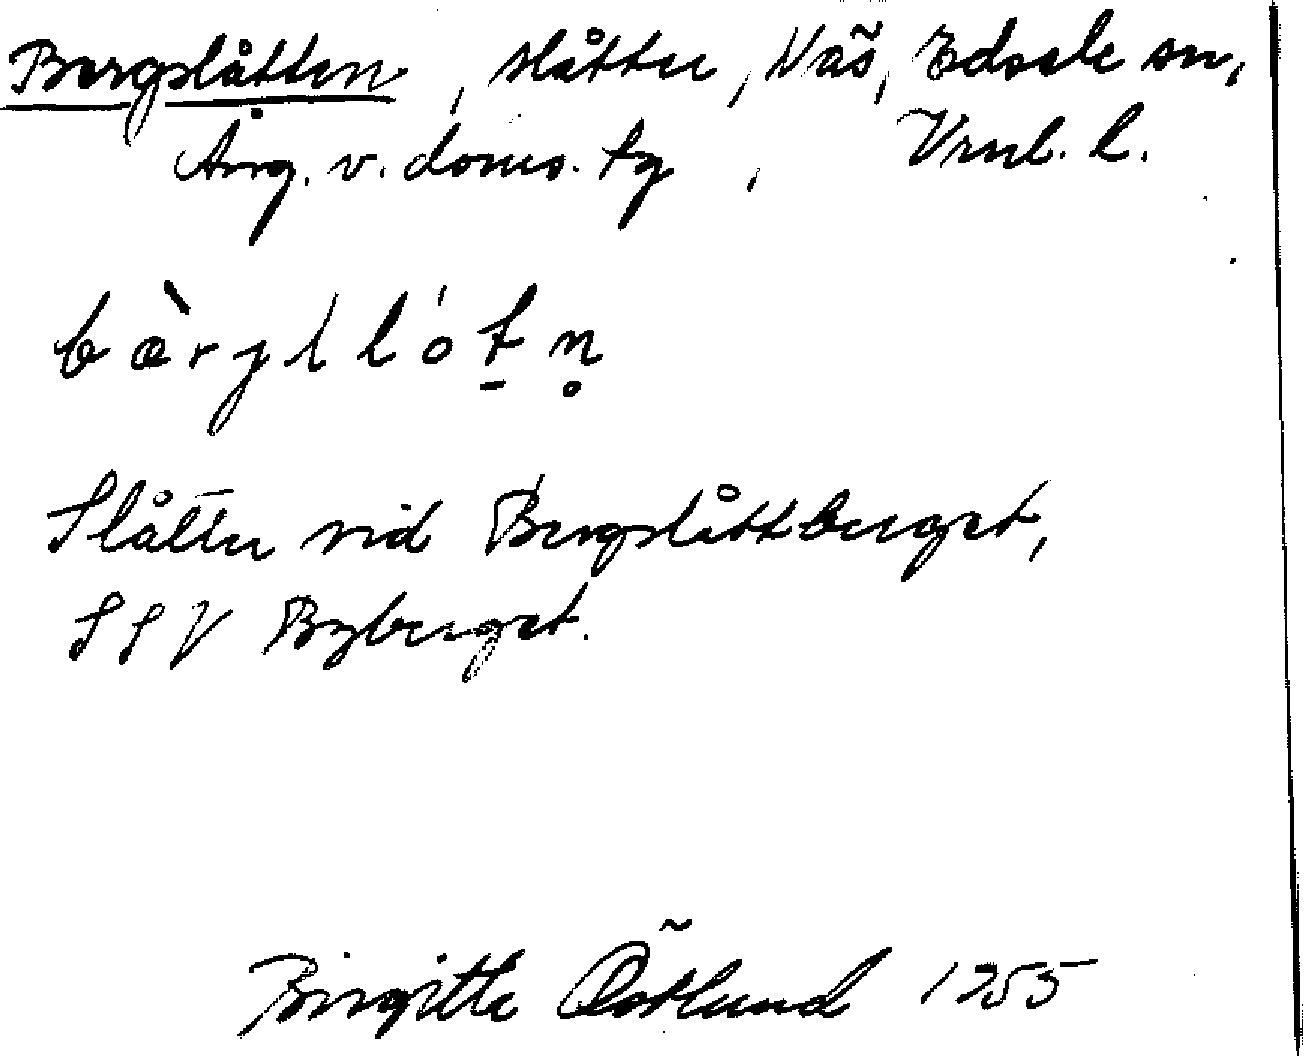 Bergslåtten, slåtter, Näs, Edsele sn,
Ång. v. doms. tg, Vrnl. l.
bæ̀rjllótṇ
Slåtter vid Bergslåttberget,
SSV Byberget.
Birgitta Östlund 1955